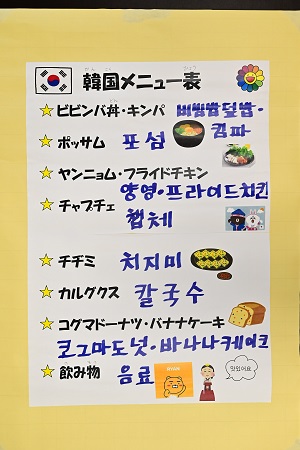 韓国メニュー表
ビビンバ丼・キンパ 비빔밥덮밥・
김파
ポッサム 포섬
ヤンニョム・フライドチキン
양영・프라이드치킨
チャプチェ 챕체
チヂミ 치지미
カルグクス 칼국수
コグマドーナツ・バナナケーキ
코그마도넛・바나나케이크
飲み物 음료
맛있어요